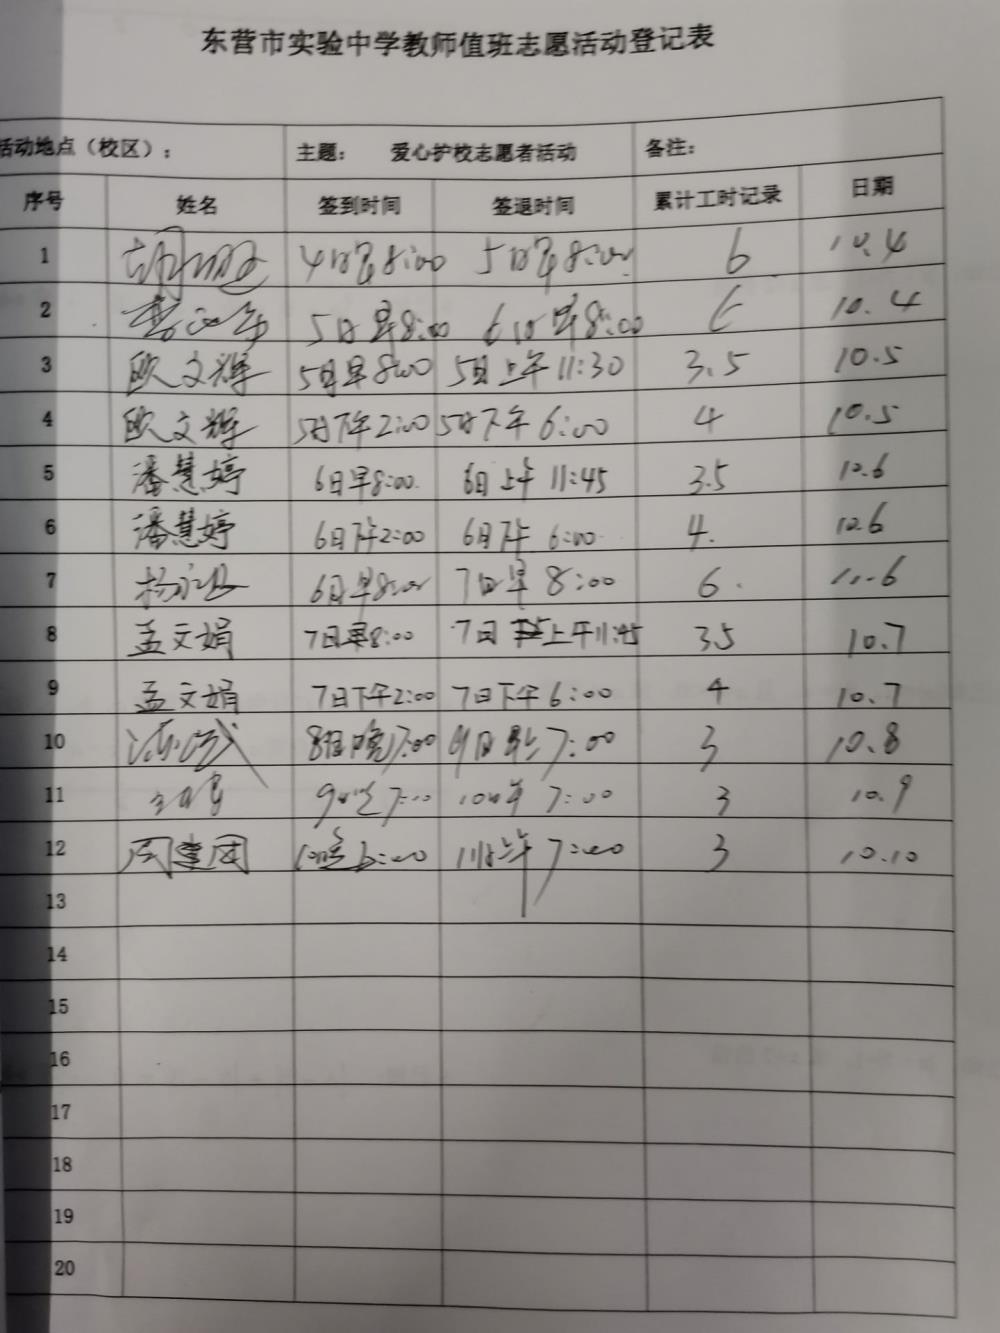 东营市实验中学教师值班志愿活动登记表
活动地点（校区）： 主题： 爱心护校志愿者活动 备注：
序号 姓名 签到时间 签退时间 累计工时记录 日期
1 4日早8:00 5日早8:00 6 10.4
2 5日早8:00 6日早8:00 6 10.4
3 欧文辉 5日早8:00 5日上午11:30 3.5 10.5
4 欧文辉 5日下午2:00 5日下午6:00 4 10.5
5 潘慧婷 6日早8:00 6日上午11:45 3.5 10.6
6 潘慧婷 6日下午2:00 6日下午6:00 4. 10.6
7 6日早8:00 7日早8:00 6. 10.6
8 孟文娟 7日早8:00 7日上午11:45 3.5 10.7
9 孟文娟 7日下午2:00 7日下午6:00 4 10.7
10 8日晚7:00 9日早7:00 3 10.8
11 9日晚7:00 10日早7:00 3 10.9
12 周建国 10日晚6:00 11日早7:00 3 10.10
13
14
15
16
17
18
19
20